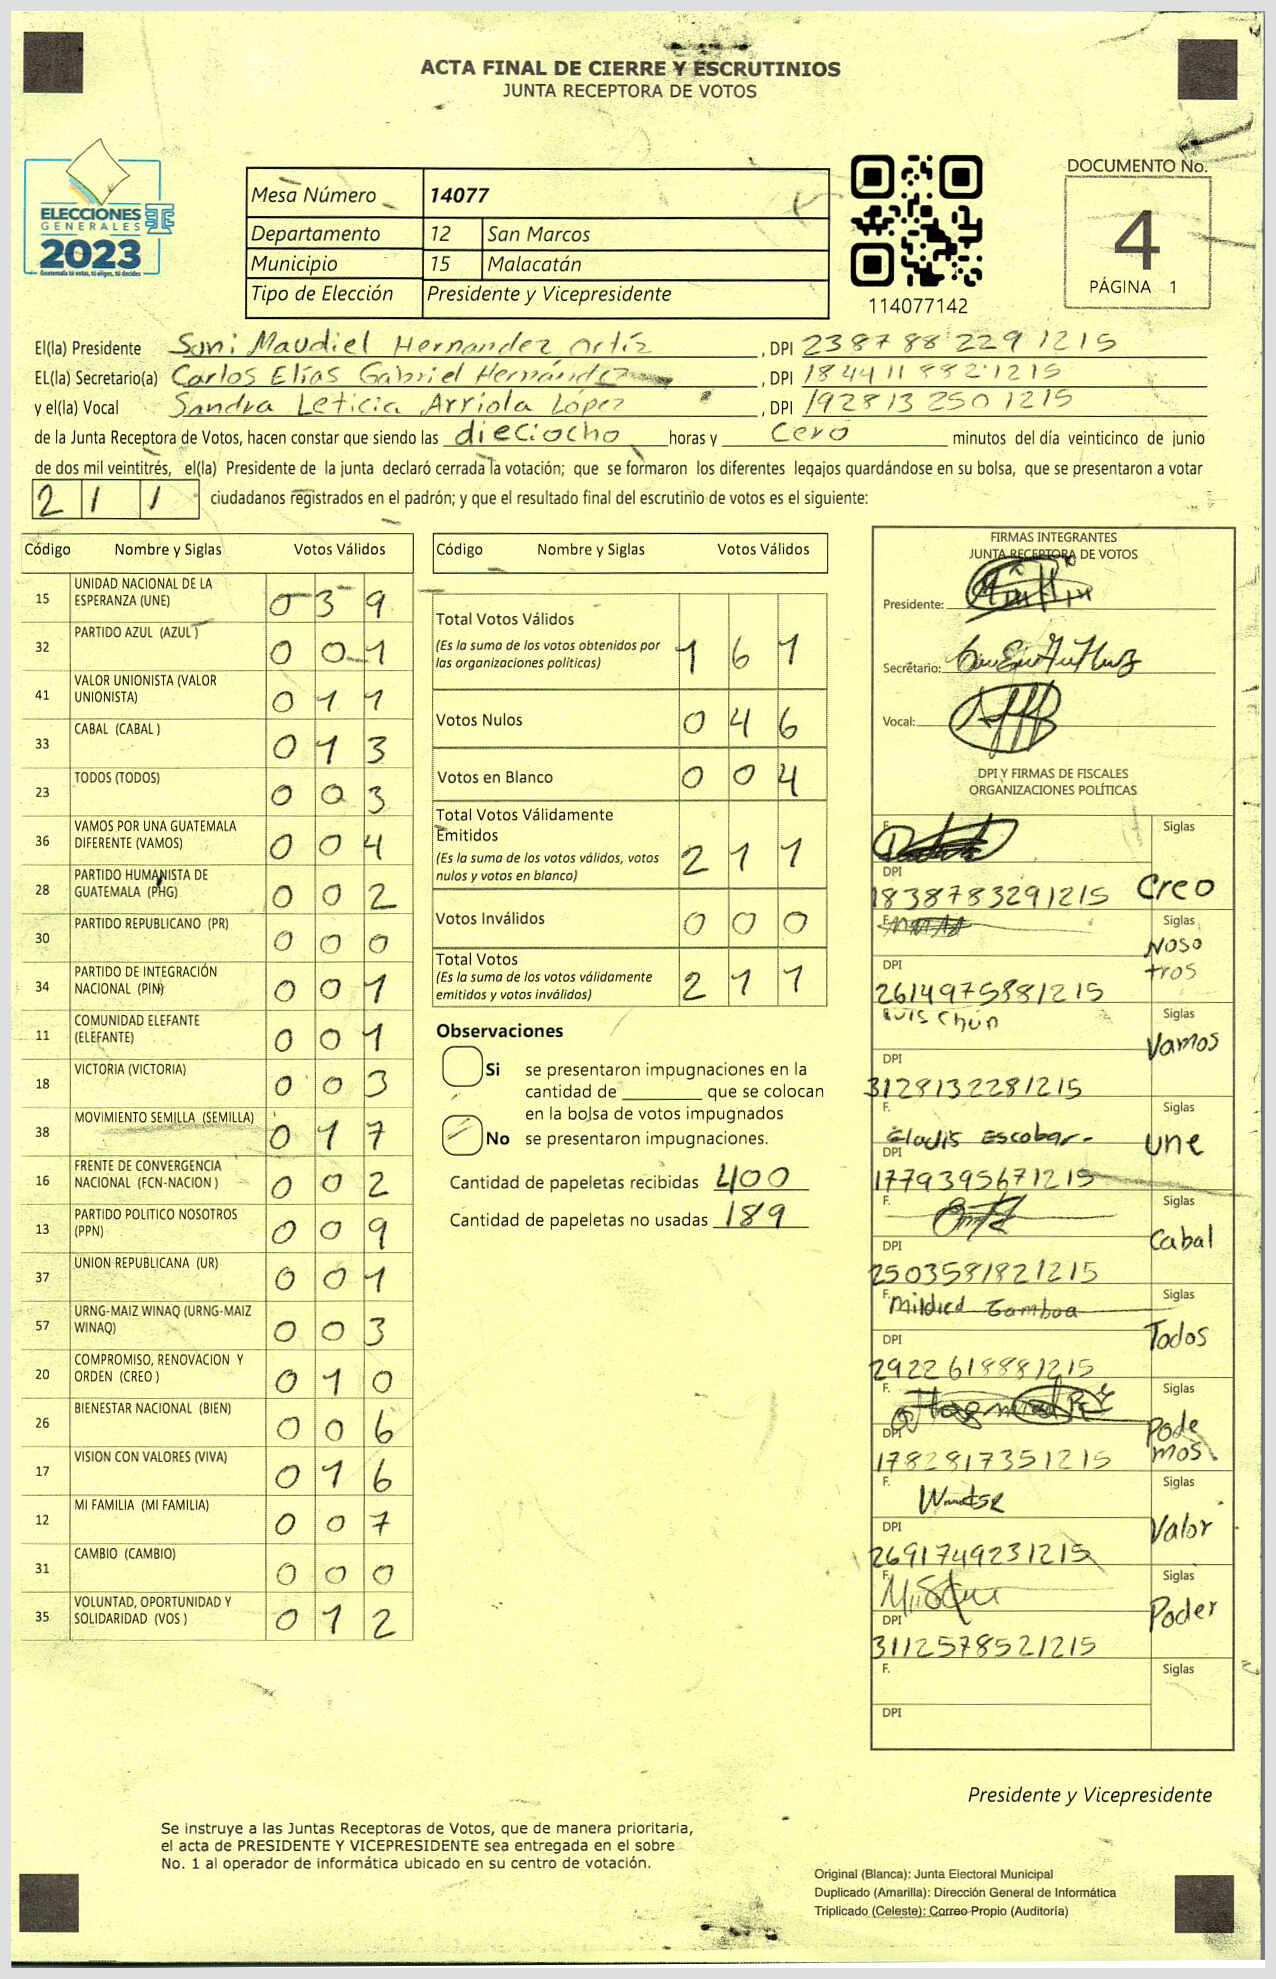 ACTA FINAL DE CIERRE Y ESCRUTINIOS
JUNTA RECEPTORA DE VOTOS
ELECCIONES
GENERALES
2023
Guatemala tú votas, tú eliges, tú decides
Mesa Número 14077
Departamento 12 San Marcos
Municipio 15 Malacatán
Tipo de Elección Presidente y Vicepresidente
114077142
DOCUMENTO No.
4
PÁGINA 1
El(la) Presidente Suni Maudiel Hernandez Ortíz, DPI 2387 88 229 1215
EL(la) Secretario(a) Carlos Elías Gabriel Hernández, DPI 1844 11 882 1215
y el(la) Vocal Sandra Leticia Arriola López, DPI 19281 3 250 1215
de la Junta Receptora de Votos, hacen constar que siendo las dieciocho horas y cero minutos del día veinticinco de junio
de dos mil veintitrés, el(la) Presidente de la junta declaró cerrada la votación; que se formaron los diferentes legajos guardándose en su bolsa, que se presentaron a votar
2 1 1 ciudadanos registrados en el padrón; y que el resultado final del escrutinio de votos es el siguiente:
Código Nombre y Siglas Votos Válidos
15 UNIDAD NACIONAL DE LA ESPERANZA (UNE) 0 3 9
32 PARTIDO AZUL (AZUL) 0 0 1
41 VALOR UNIONISTA (VALOR UNIONISTA) 0 1 1
33 CABAL (CABAL) 0 1 3
23 TODOS (TODOS) 0 0 3
36 VAMOS POR UNA GUATEMALA DIFERENTE (VAMOS) 0 0 4
28 PARTIDO HUMANISTA DE GUATEMALA (PHG) 0 0 2
30 PARTIDO REPUBLICANO (PR) 0 0 0
34 PARTIDO DE INTEGRACIÓN NACIONAL (PIN) 0 0 1
11 COMUNIDAD ELEFANTE (ELEFANTE) 0 0 1
18 VICTORIA (VICTORIA) 0 0 3
38 MOVIMIENTO SEMILLA (SEMILLA) 0 1 7
16 FRENTE DE CONVERGENCIA NACIONAL (FCN-NACION) 0 0 2
13 PARTIDO POLITICO NOSOTROS (PPN) 0 0 9
37 UNION REPUBLICANA (UR) 0 0 1
57 URNG-MAIZ WINAQ (URNG-MAIZ WINAQ) 0 0 3
20 COMPROMISO, RENOVACION Y ORDEN (CREO) 0 1 0
26 BIENESTAR NACIONAL (BIEN) 0 0 6
17 VISION CON VALORES (VIVA) 0 1 6
12 MI FAMILIA (MI FAMILIA) 0 0 7
31 CAMBIO (CAMBIO) 0 0 0
35 VOLUNTAD, OPORTUNIDAD Y SOLIDARIDAD (VOS) 0 1 2
Código Nombre y Siglas Votos Válidos
Total Votos Válidos
(Es la suma de los votos obtenidos por las organizaciones políticas) 1 6 1
Votos Nulos 0 4 6
Votos en Blanco 0 0 4
Total Votos Válidamente Emitidos
(Es la suma de los votos válidos, votos nulos y votos en blanco) 2 1 1
Votos Inválidos 0 0 0
Total Votos
(Es la suma de los votos válidamente emitidos y votos inválidos) 2 1 1
Observaciones
Si se presentaron impugnaciones en la
cantidad de ________ que se colocan
en la bolsa de votos impugnados
No se presentaron impugnaciones.
Cantidad de papeletas recibidas 400
Cantidad de papeletas no usadas 189
FIRMAS INTEGRANTES
JUNTA RECEPTORA DE VOTOS
Presidente:
Secretario:
Vocal:
DPI Y FIRMAS DE FISCALES
ORGANIZACIONES POLÍTICAS
F. Siglas
DPI 1838783291215 Creo
F. Siglas
DPI 2614975881215 Nosotros
Luis Chún Siglas
DPI 3128132281215 Vamos
F. Gladis Escobar Siglas
DPI 1779395671215 Une
F. Siglas
DPI 2503581821215 Cabal
F. Mildred Gamboa Siglas
DPI 2922618881215 Todos
F. Siglas
DPI 1782817351215 Podemos
F. Siglas
DPI 2691749231215 Valor
F. Siglas
DPI 3112578521215 Poder
F. Siglas
DPI
Presidente y Vicepresidente
Se instruye a las Juntas Receptoras de Votos, que de manera prioritaria,
el acta de PRESIDENTE Y VICEPRESIDENTE sea entregada en el sobre
No. 1 al operador de informática ubicado en su centro de votación.
Original (Blanca): Junta Electoral Municipal
Duplicado (Amarilla): Dirección General de Informática
Triplicado (Celeste): Correo Propio (Auditoría)